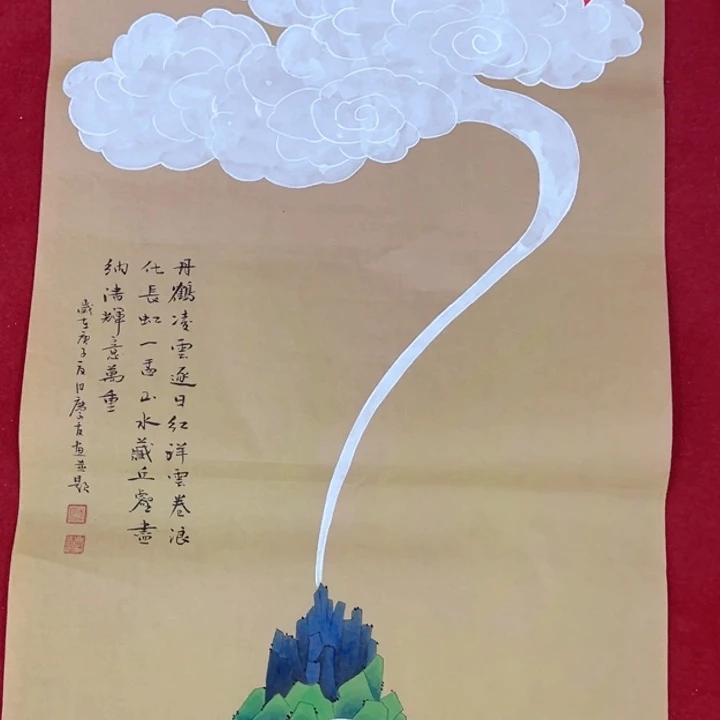 丹鶴凌雲逐日紅祥雲卷浪
化長虹一盂山水藏丘壑盡
納清輝意萬重
歲在庚子夏日畫並題